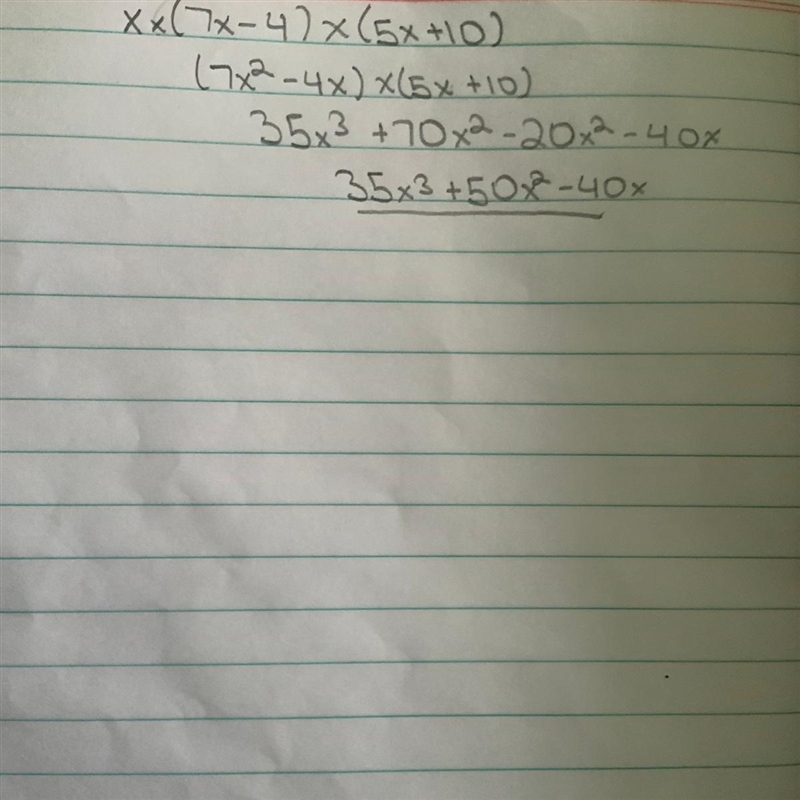 x×(7x-4)×(5x+10)
(7x²-4x)×(5x+10)
35x³+70x²-20x²-40x
35x³+50x²-40x